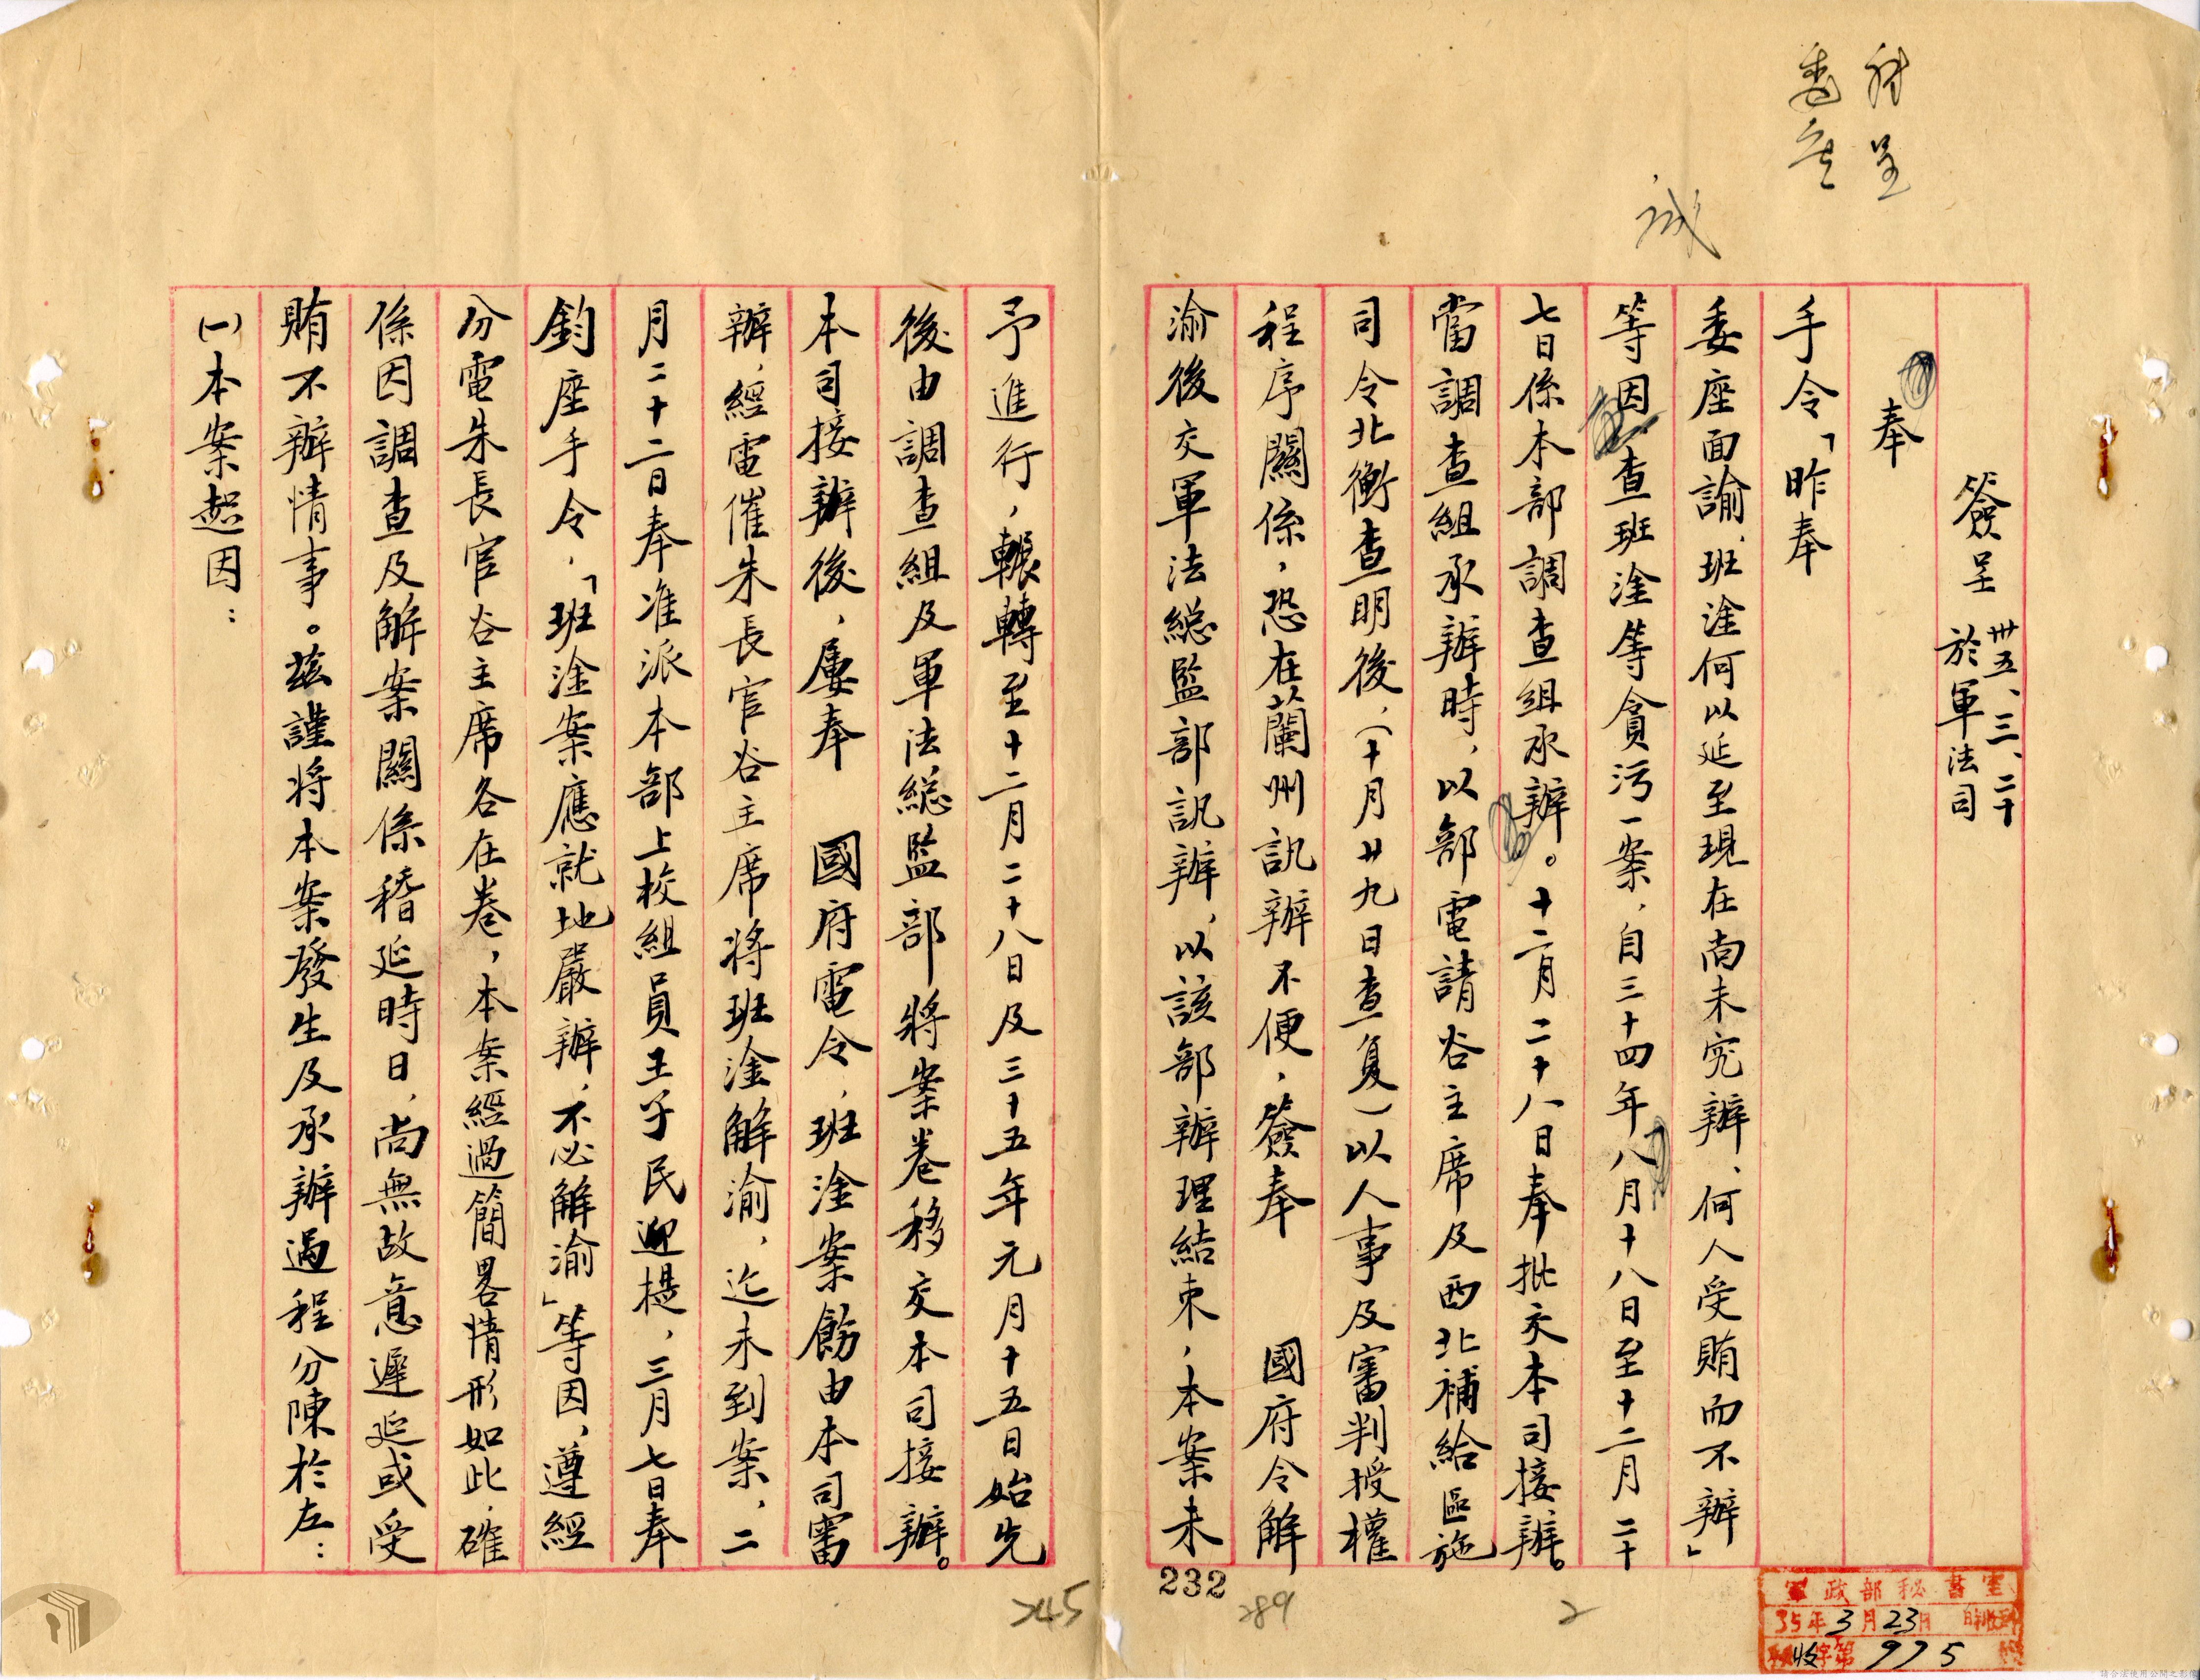 簽呈 卅五、三、二十
於軍法司
奉
手令「昨奉
委座面諭、班淦何以延至現在尚未究辦、何人受賄而不辦」
等因、查班淦等貪污一案、自三十四年八月十八日至十二月二十
七日係本部調查組承辦。十二月二十八日奉批交本司接辦。
當調查組承辦時、以部電請谷主席及西北補給區施
司令北衡查明後、(十月廿九日查復)以人事及審判授權
程序關係,恐在蘭州訊辦不便,簽奉 國府令解
渝後交軍法總監部訊辦、以該部辦理結束,本案未
予進行,輾轉至十二月二十八日及三十五年元月十五日始先
後由調查組及軍法總監部將案卷移交本司接辦。
本司接辦後,屢奉 國府電令,班淦案飭由本司審
辦,經電催朱長官谷主席將班淦解渝,迄未到案,二
月二十二日奉准派本部上校組員王子民迎提,三月七日奉
鈞座手令,「班淦案應就地嚴辦,不必解渝」等因、遵經
分電朱長官谷主席各在卷,本案經過簡略情形如此,確
係因調查及解案關係稽延時日,尚無故意遲延或受
賄不辦情事。茲謹將本案發生及承辦過程分陳於左:
(一)本案起因:
誠
232
245
289
2
軍政部秘書室
35年3月23日 時收到
收字第975號